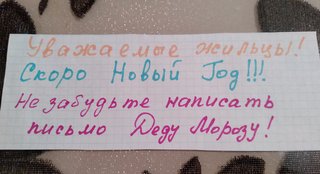 Уважаемые жильцы!
Скоро Новый Год!!!
Не забудьте написать
письмо Деду Морозу!